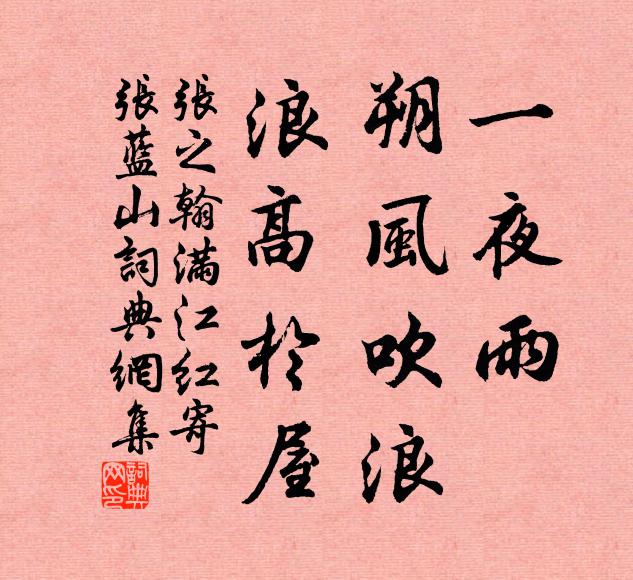 一夜雨
朔風吹浪
浪高於屋
張之翰滿江紅寄
張藍山詞典網集
詞典網印